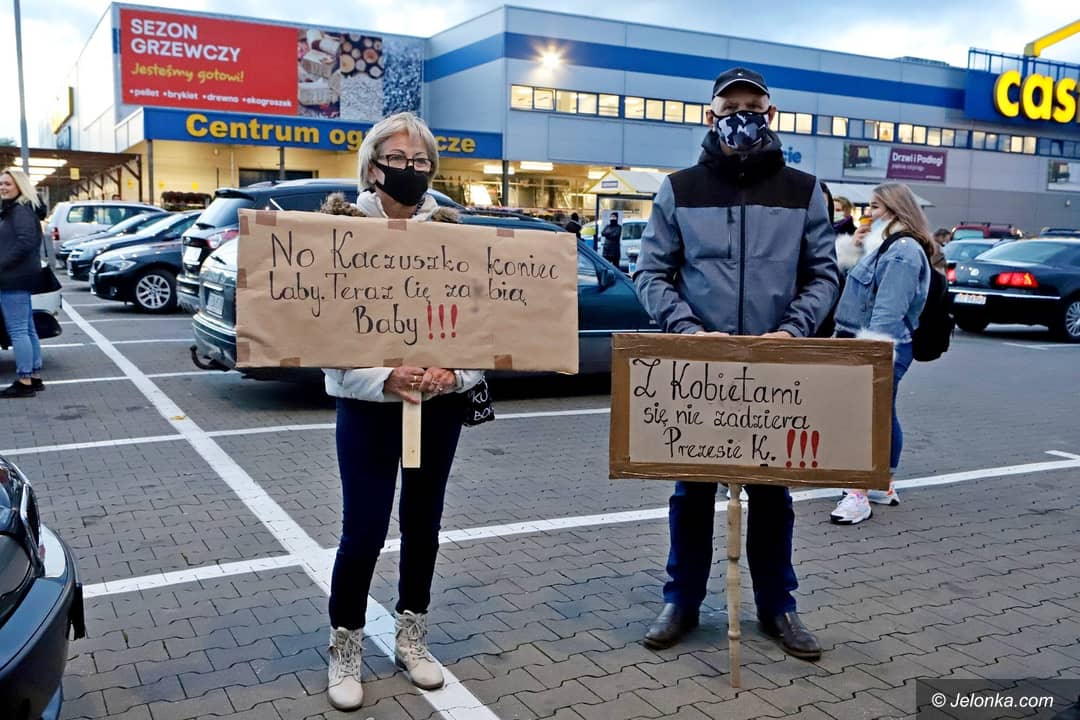 SEZON
GRZEWCZY
Jesteśmy gotowi!
•pellet •brykiet •drewno •ekogroszek
Centrum
cas
Drzwi i Podłogi
No Kaczuszko koniec
Laby. Teraz Cię za bią
Baby!!!
Z Kobietami
się nie zadziera
Prezesie K. !!!
© Jelonka.com